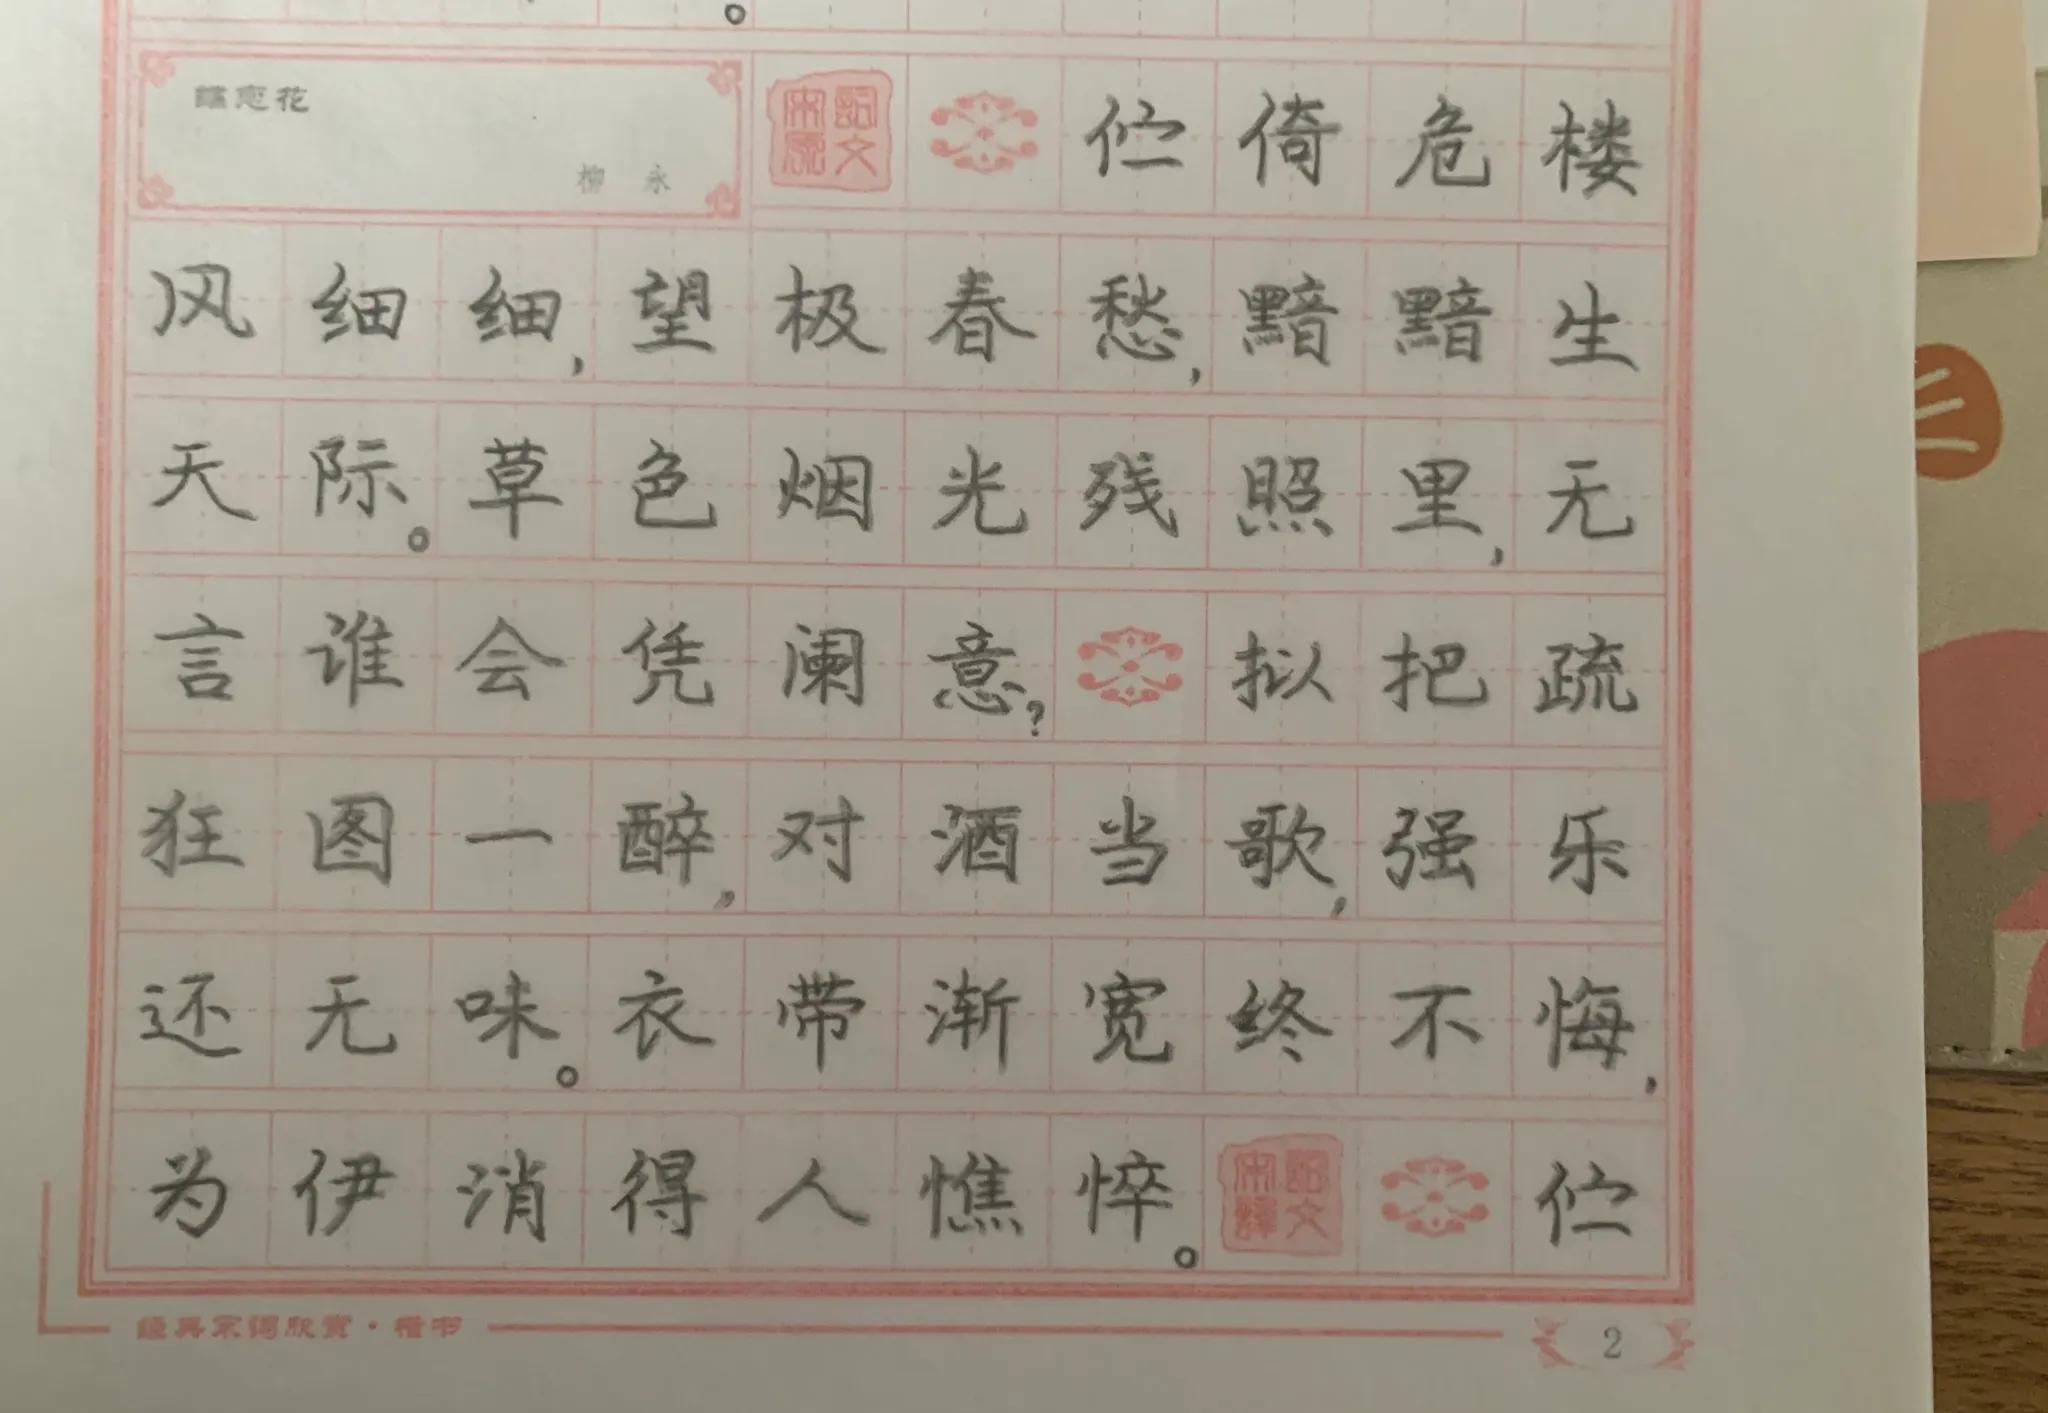 。
蝶恋花
柳 永
宋词原文
伫倚危楼
风细细,望极春愁,黯黯生
天际。草色烟光残照里,无
言谁会凭阑意?拟把疏
狂图一醉,对酒当歌,强乐
还无味。衣带渐宽终不悔,
为伊消得人憔悴。
宋詞譯文
伫
经典宋词欣赏·楷书
2